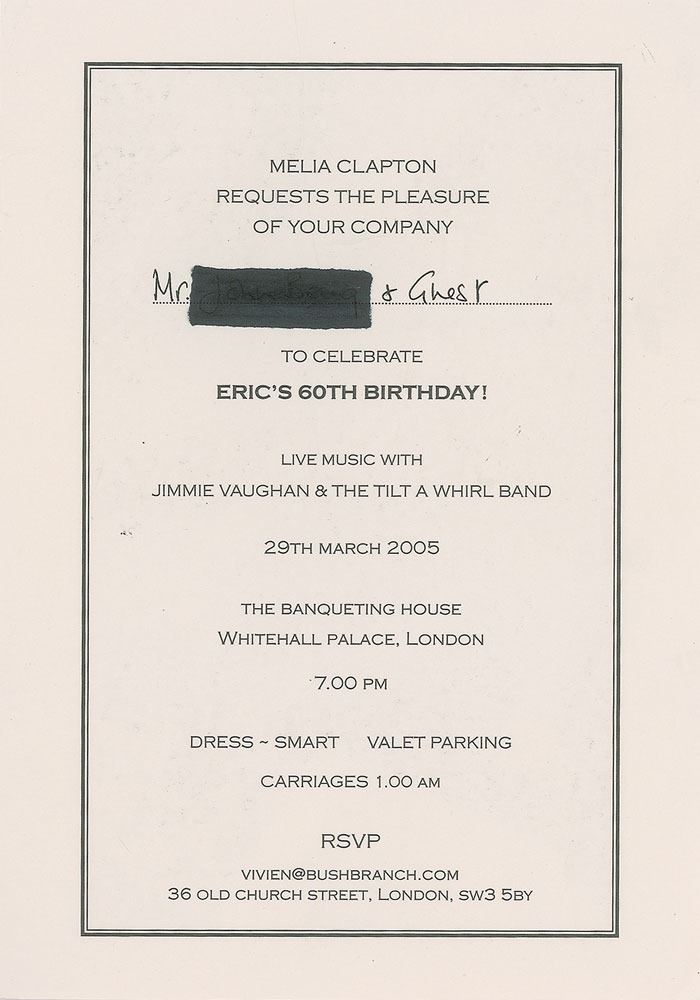 MELIA CLAPTON
REQUESTS THE PLEASURE
OF YOUR COMPANY
Mr. & Guest
TO CELEBRATE
ERIC'S 60TH BIRTHDAY!
LIVE MUSIC WITH
JIMMIE VAUGHAN & THE TILT A WHIRL BAND
29TH MARCH 2005
THE BANQUETING HOUSE
WHITEHALL PALACE, LONDON
7.00 PM
DRESS ~ SMART VALET PARKING
CARRIAGES 1.00 AM
RSVP
VIVIEN@BUSHBRANCH.COM
36 OLD CHURCH STREET, LONDON, SW3 5BY